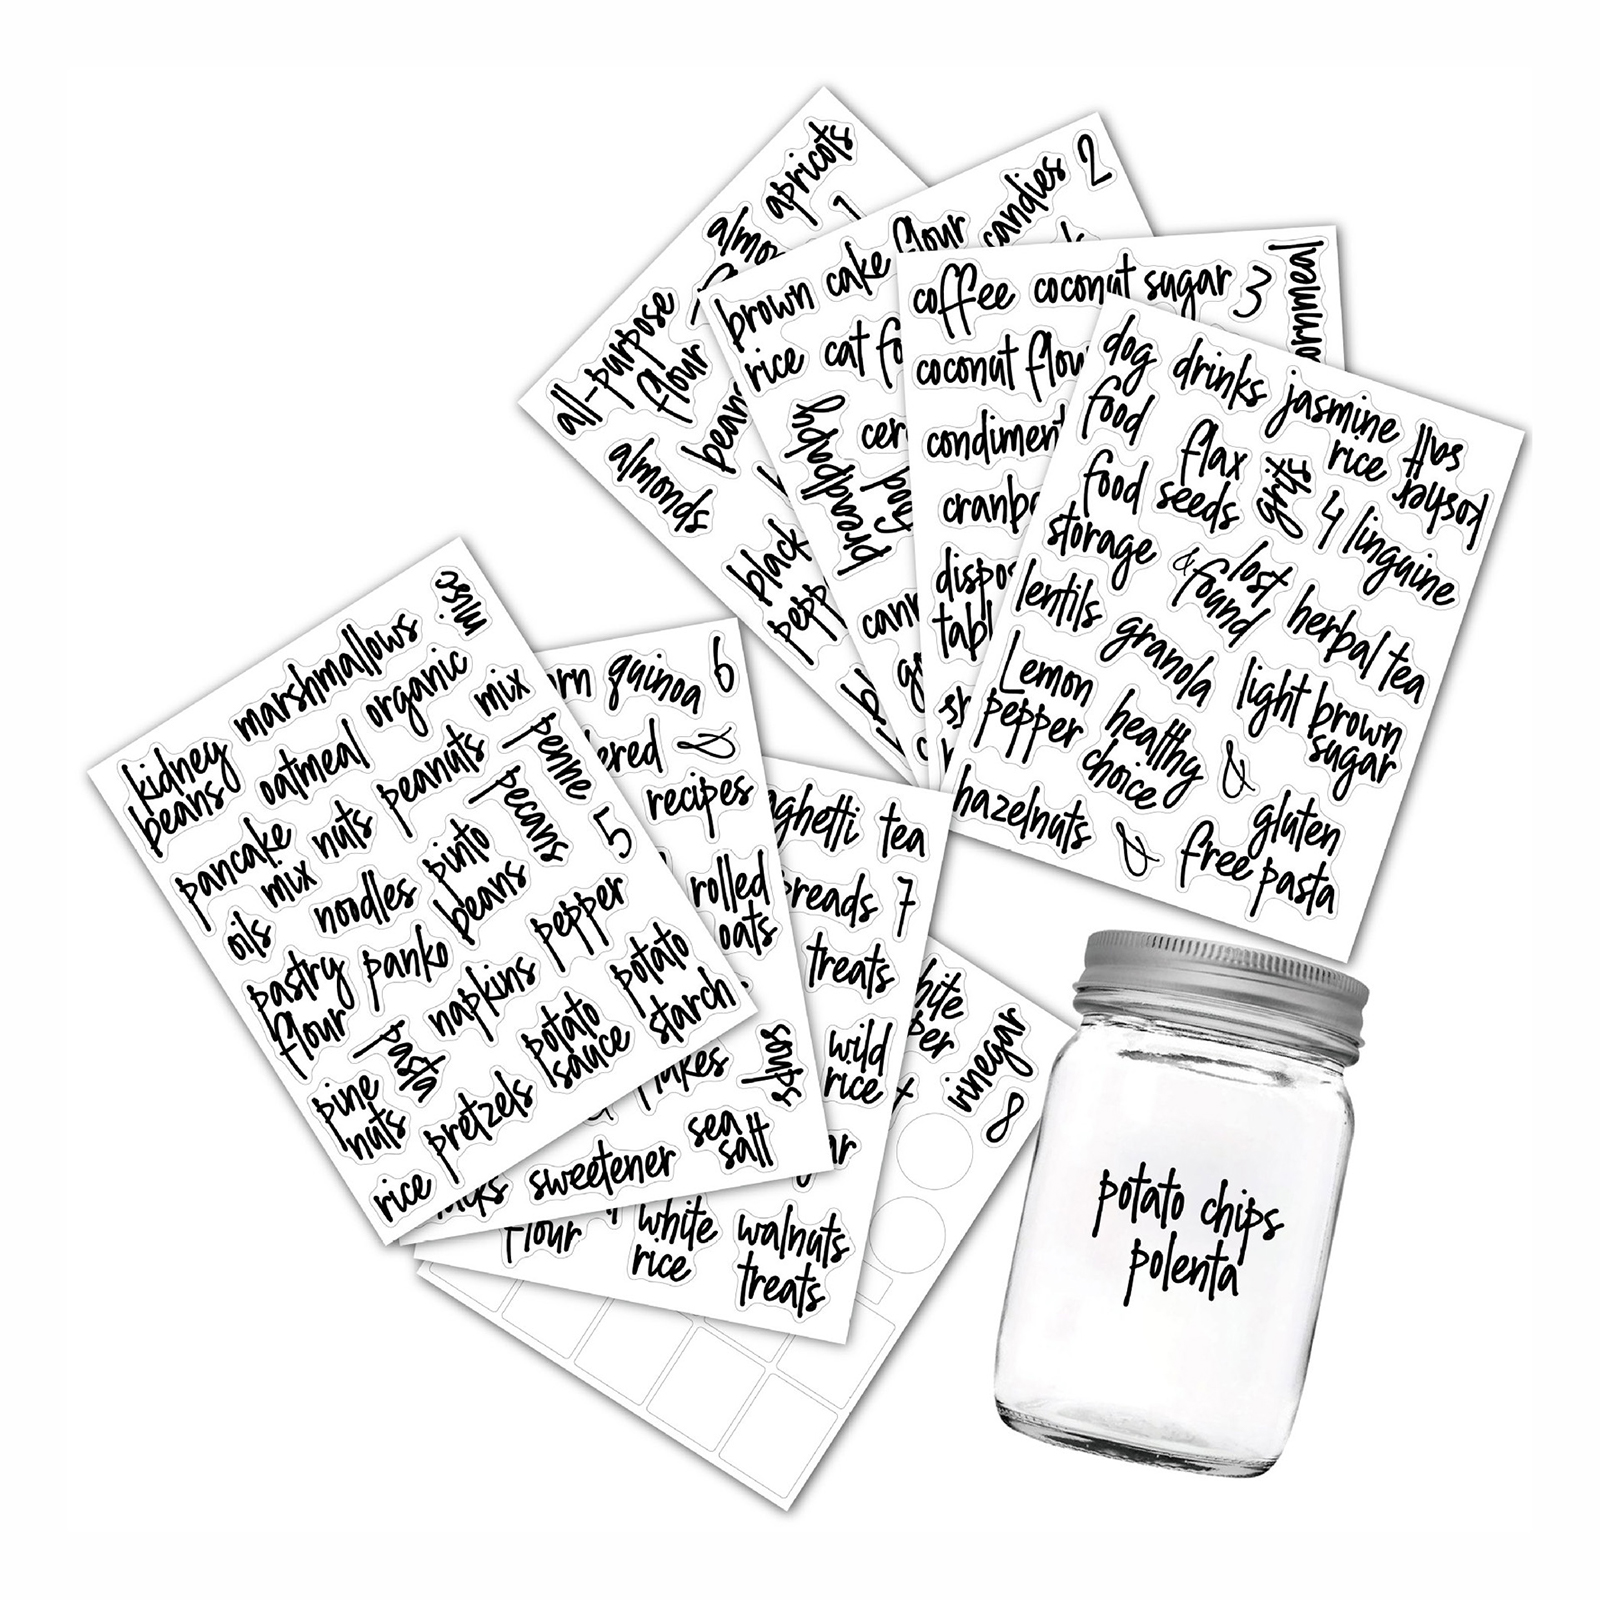 apricots
1
all-purpose
flour
almonds
black
candies
2
brown
rice
cake
flour
cat
coffee
coconut sugar
3
coconut
dog
food
drinks
jasmine
rice
kosher
salt
flax
seeds
grits
4
linguine
food
storage
lost
&
found
herbal tea
lentils
granola
light brown
sugar
Lemon
pepper
healthy
choice
&
hazelnuts
&
gluten
free pasta
kidney
beans
marshmallows
misc
oatmeal
organic
mix
pancake
mix
nuts
peanuts
penne
pecans
5
oils
noodles
pinto
beans
pastry
flour
panko
napkins
pepper
potato
starch
pasta
potato
sauce
pine
nuts
pretzels
rice
quinoa
6
&
recipes
rolled
oats
soups
sea
salt
sweetener
tea
7
treats
wild
rice
flour
white
rice
walnuts
treats
vinegar
8
potato chips
polenta